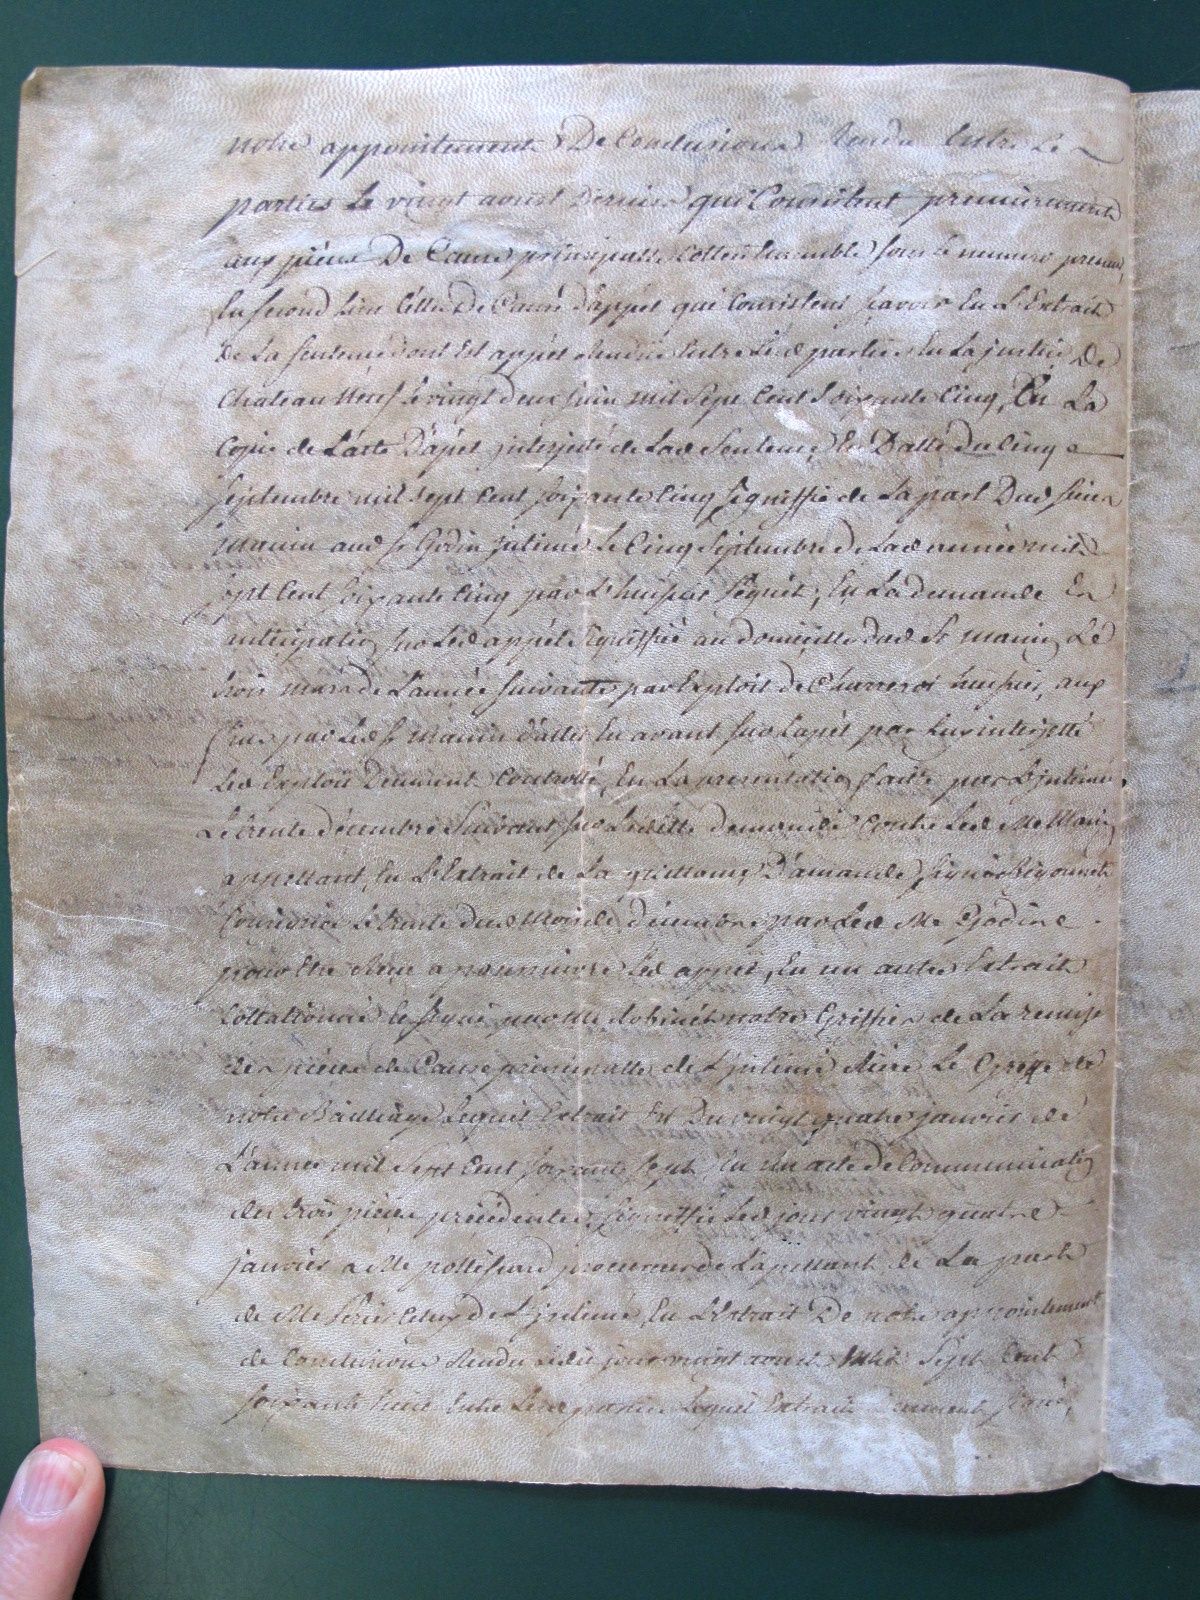 notre appointement De Conclusions Rendu Entre Les
parties Le vingt aoust Dernier qui Consistent premierement
aux pièces De Cause principalle Cottées Ensemble sous Le numero premier
En second lieu Celles De Cause d'appel qui Consistent sçavoir En L'Extrait
De La sentence dont Est appel Rendüe Entre Lesd parties En La justice De
Chateau Neuf Le vingt deux juin mil Sept Cent Soixante Cinq, En La
Copie de L'acte D'apel interjeté de Lad Sentence En Datte du Cinq
Septembre mil Sept Cent Soixante Cinq Signiffié de La part Dud Sieur
manin aud Sr Godin intimé Le Cinq Septembre de Lad année mil
sept Cent Soixante Cinq par L'huissier ; En La demande En
anticipation sur Led appel Signiffié au domicille dud Sr manin Le
trois mars de L'année Suivante par Exploit de huissier, aux
fins par Led Sr manin d'aller En avant sur L'apel par Luy interjetté
Led Exploit Deument Controllé, En La presentation faite par L'intimé
Le trente décembre Suivant sur Laditte demande Contre Led Me Manin
appellant, En L'Extrait de La quittance D'amande Signée
Consignée Le trente dud Mois de décembre par Led Me Godin
pour Etre Reçu a poursuivre Led appel, En un autre Extrait
Collationné Signé notre Griffier de La remise
des pièces de Cause principalle de L'intimé Rière Le Greffe de
notre Bailliage Lequel Extrait Est Du vingt quatre janvier de
L'année mil Sept Cent Soixante Sept En Un acte de Communication
des trois pièces précédentes Signiffié Led jour vingt quatre
janvier a Me procureur de L'apellant de La part
de Me Celuy de L'intimé, En L'Extrait De notre appointement
de Conclusions Rendu Ledit jour vingt aoust Mil Sept Cent
Soixante Entre Lesd parties Lequel Extrait Deument Signé,